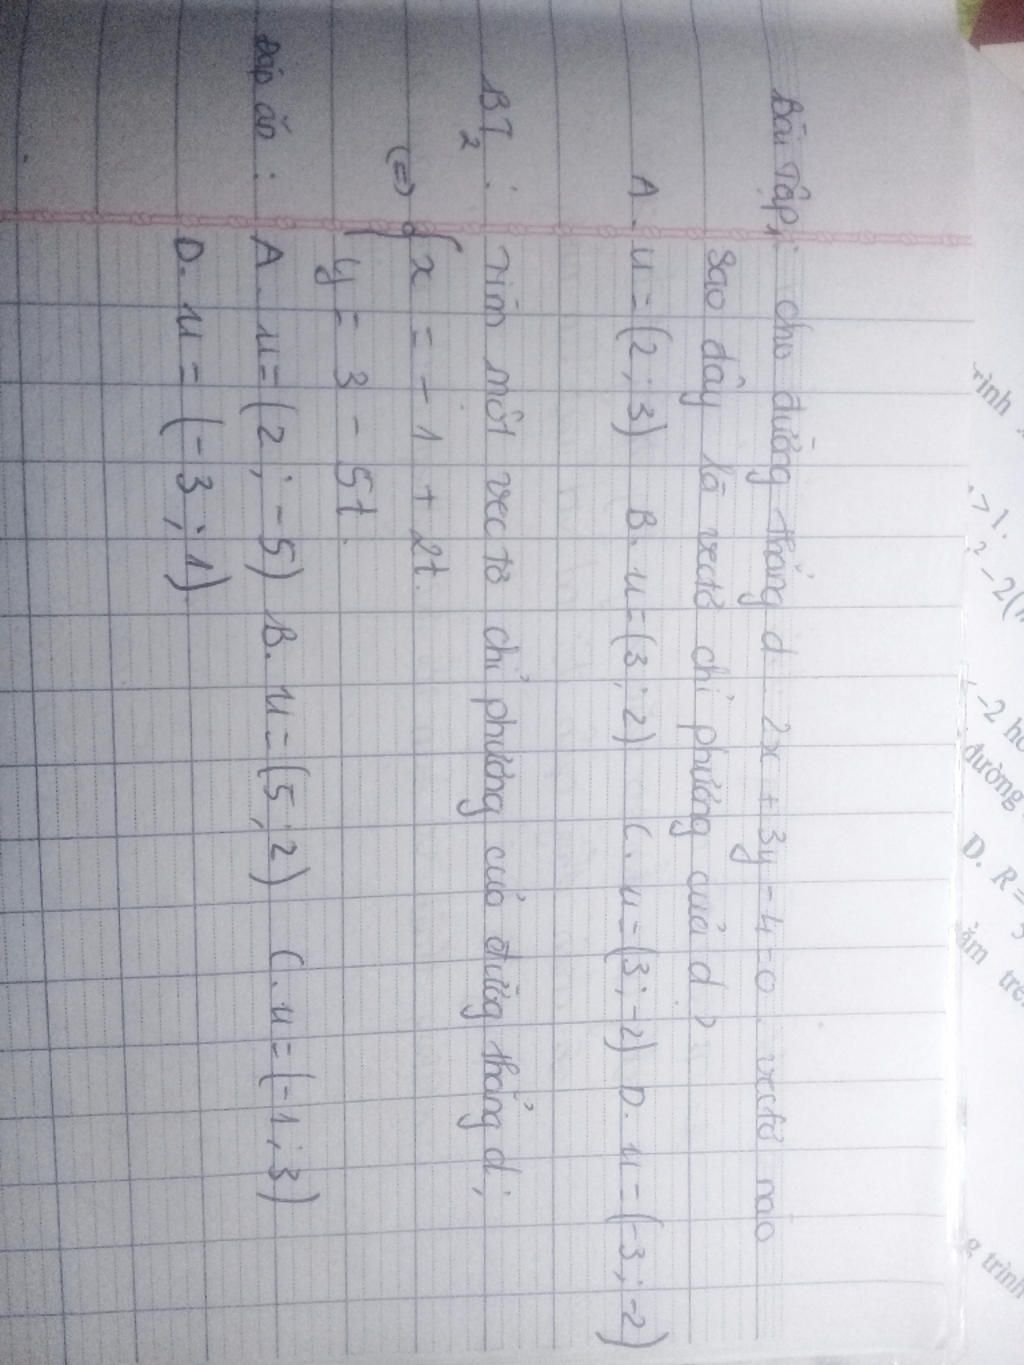 Bài Tập1: cho đường thẳng d: 2x + 3y - 4 = 0. vectơ nào
sao dây là vectơ chỉ phương của d?
A. u = (2; 3) B. u = (3; 2) C. u = (3; -2) D. u = (-3; -2)
BT2: Tìm một vectơ chỉ phương của đường thẳng d;
(=) { x = -1 + 2t.
y = 3 - 5t.
Đáp án: A. u = (2; -5) B. u = (5; 2) C. u = (-1; 3)
D. u = (-3; 1).
rình
> 1.
² - 2(
-2 h
đường
D. R =
ằm trê
g trình